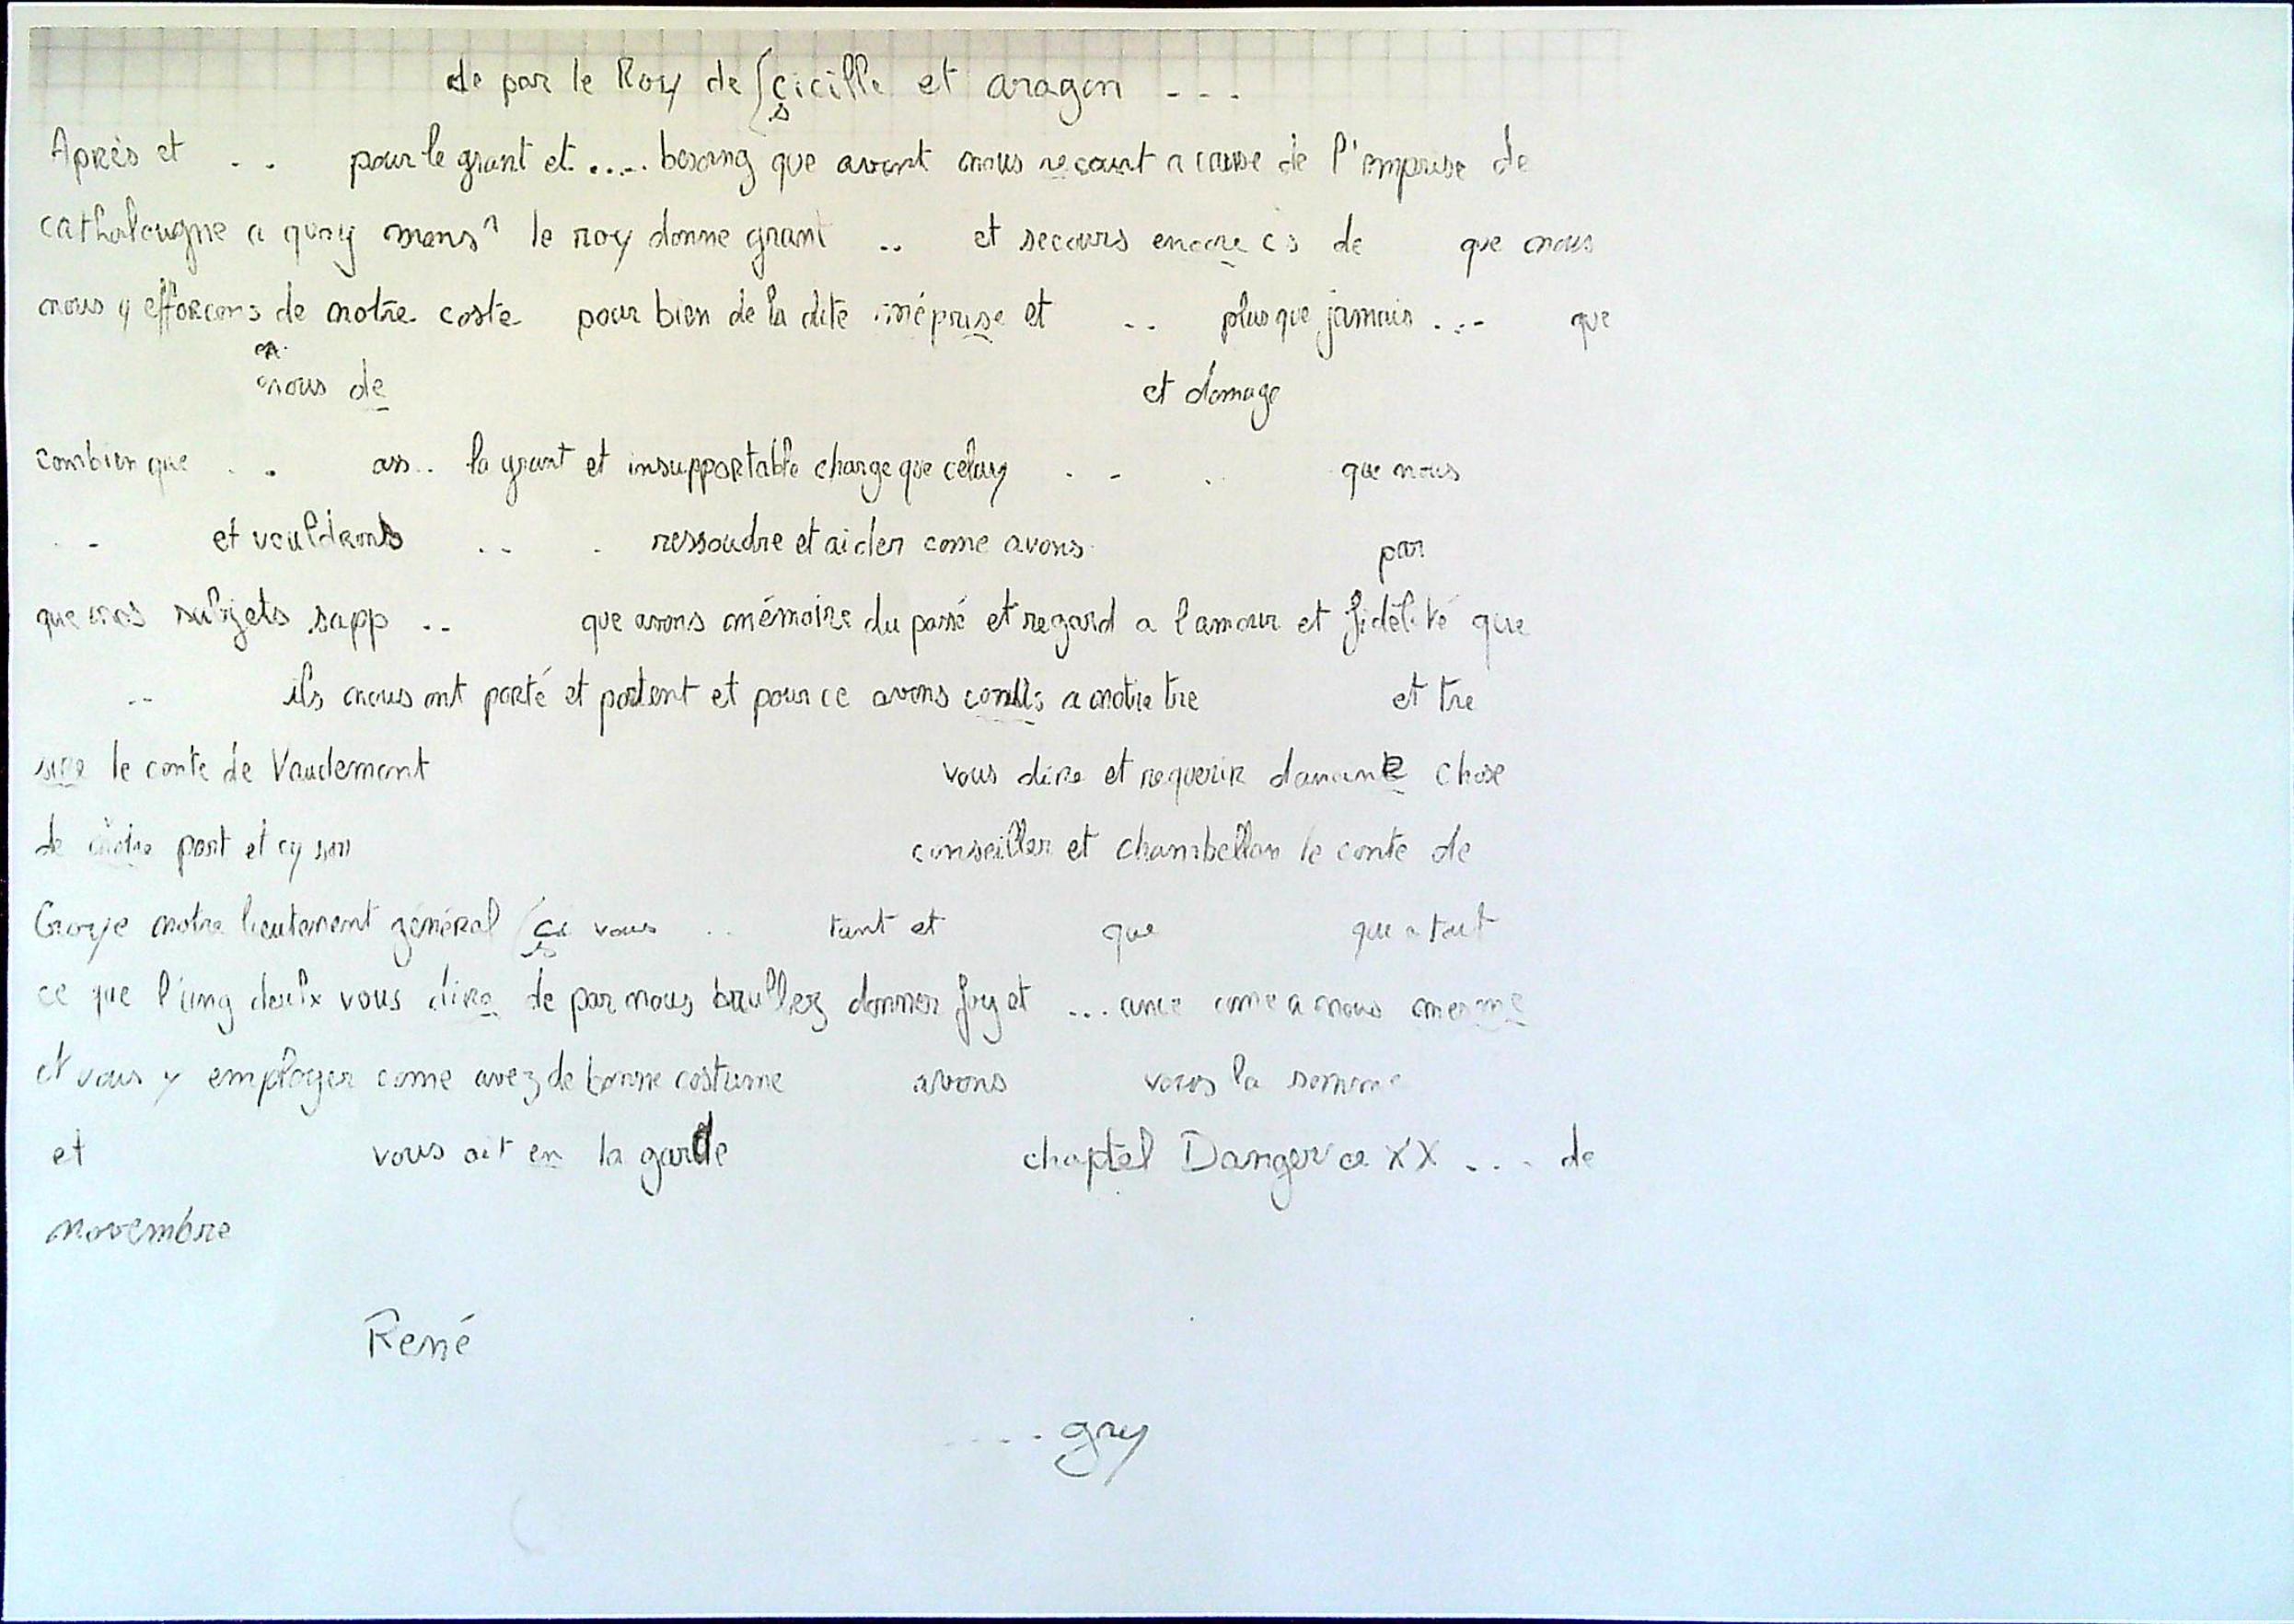 de par le Roy de Çicille et aragon ---
s
Après et .. pour le grant et ..... besoing que avont nous recourt a cause de l'emprise de
cathalougne a quoy monsr le roy donne grant .. et secours encore cs de que nous
nous y efforcons de notre coste pour bien de la dite emprise et .. plus que jamais ... que
en
nous de et domage
combien que .. ass.. la grant et insupportable charge que celuy .. . que nous
.. et vouldrons .. . ressoudre et aider come avons par
que nos subjets sapp .. que avons mémoire du passé et regard a l'amour et fidélité que
.. ils nous ont porté et portent et pour ce avons a notre tre et tre
sire le conte de Vaudemont vous dire et requerir chose
de notre part et cy son conseiller et chambellan le conte de
notre lieutenant général ça vous .. tant et que que a tout
s
ce que l'ung deulx vous dira de par nous donner foy et ... ance come a nous mesme
et vous y employer come avez de bonne costume avons vous la somme
et vous ait en la garde chaptel Danger ce XX ... de
novembre
René
.... gry